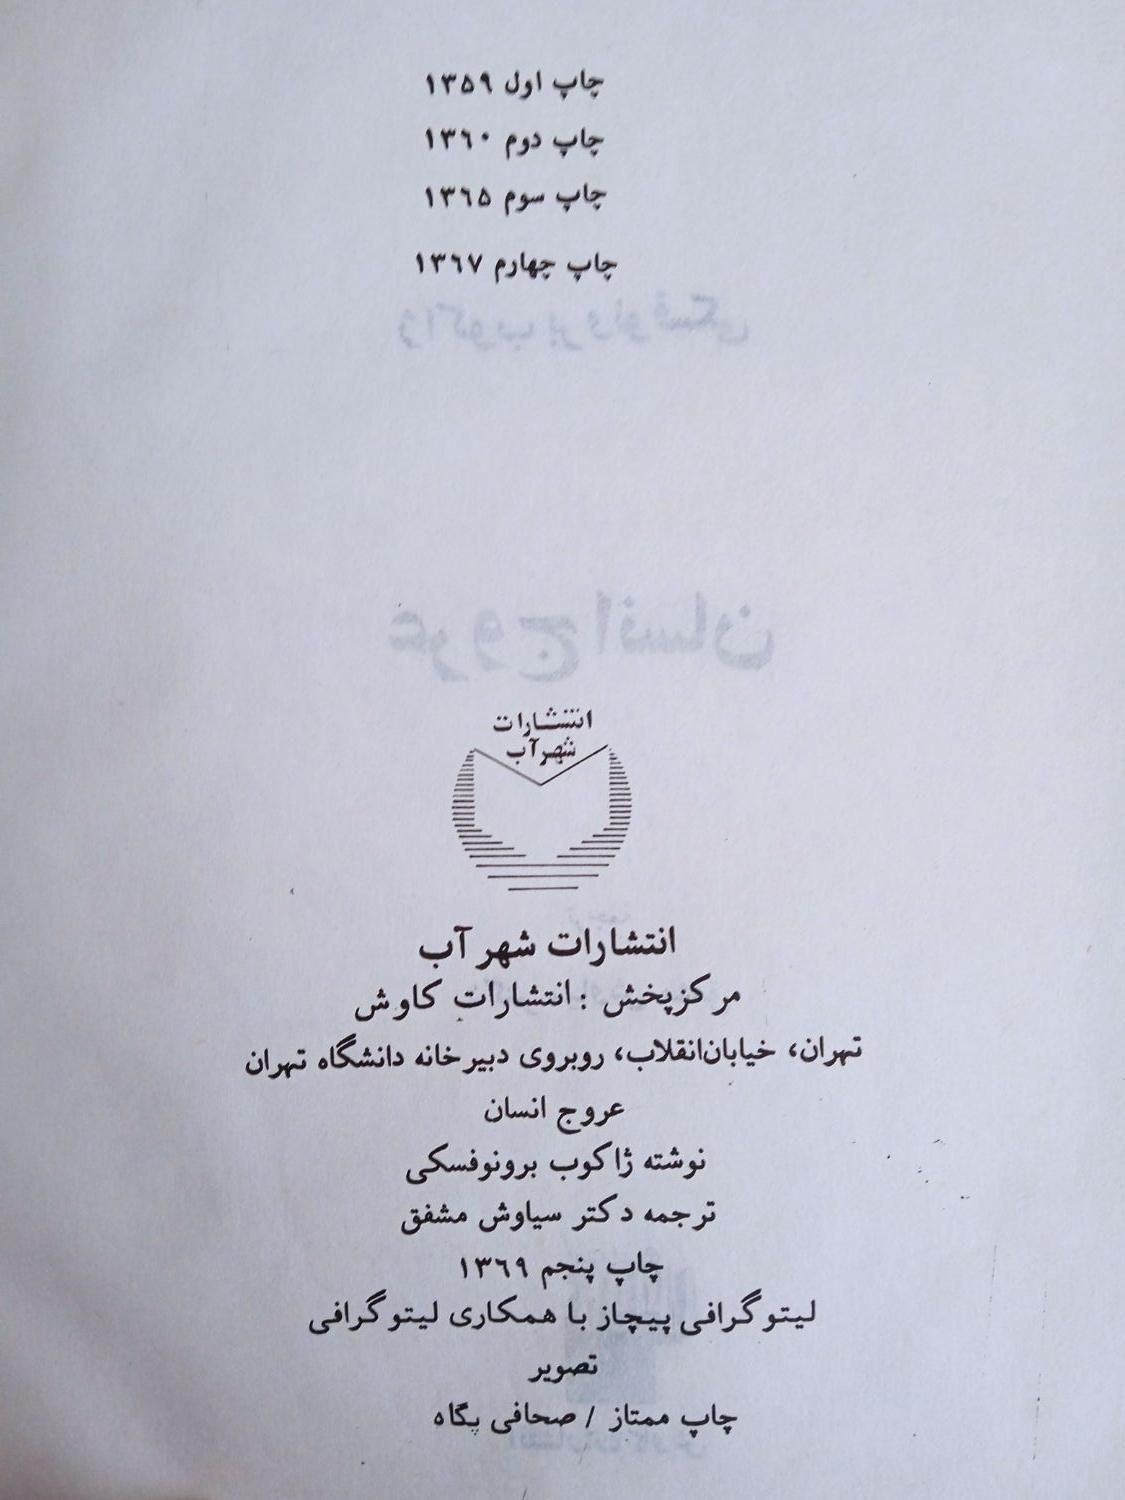 چاپ اول ۱۳۵۹
چاپ دوم ۱۳۶۰
چاپ سوم ۱۳۶۵
چاپ چهارم ۱۳۶۷
ژاکوب برونوفسکی
عروج انسان
انتشارات
شهرآب
انتشارات شهرآب
مرکزپخش : انتشارات کاوش
تهران، خیابان‌انقلاب، روبروی دبیرخانه دانشگاه تهران
عروج انسان
نوشته ژاکوب برونوفسکی
ترجمه دکتر سیاوش مشفق
چاپ پنجم ۱۳۶۹
لیتوگرافی پیچاز با همکاری لیتوگرافی
تصویر
چاپ ممتاز / صحافی پگاه